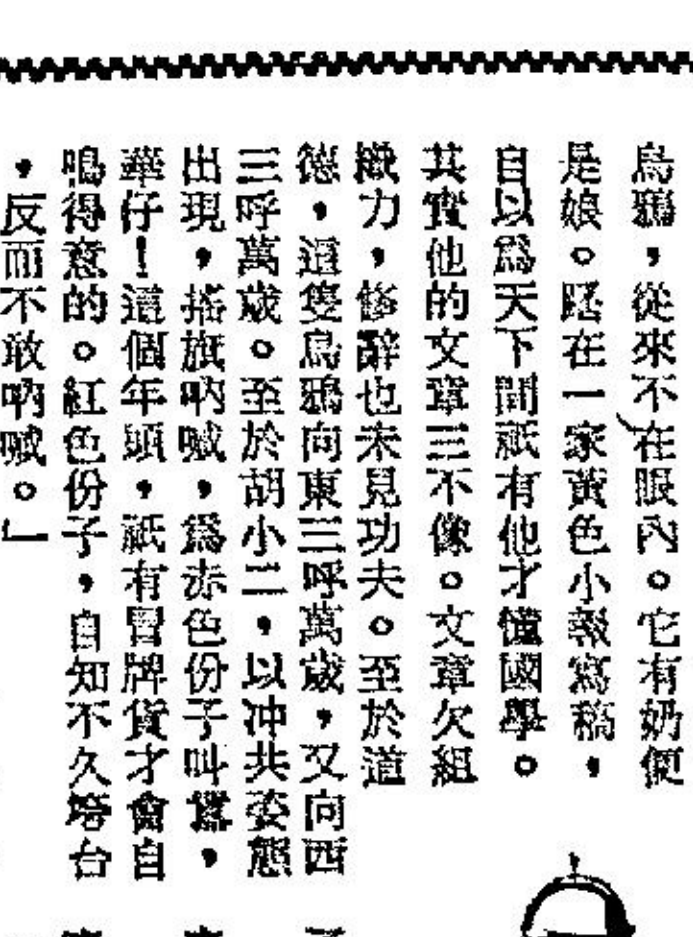 烏鴉，從來不在眼內。它有奶便
是娘。躲在一家黃色小報寫稿，
自以爲天下間祇有他才懂國學。
其實他的文章三不像。文章欠組
織力，修辭也未見功夫。至於道
德，這隻烏鴉向東三呼萬歲，又向西
三呼萬歲。至於胡小二，以冲共姿態
出現，搖旗吶喊，爲赤色份子叫囂，
華仔！這個年頭，祇有冒牌貨才會自
鳴得意的。紅色份子，自知不久塲台
，反而不敢吶喊。」